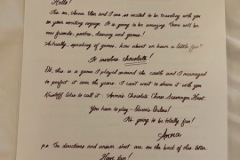 Hello!
I'm Anna and I am so excited to be traveling with you
on your exciting voyage. It is going to be amazing. There will be
new friends, parties, dancing and games!
Actually, speaking of games, how about we have a little fun?
It involves chocolate!
Ok, this is a game I played around the castle and I managed
to perfect it over the years. I can't wait to share it with you.
Kristoff likes to call it: Anna's Chocolate Chase Scavenger Hunt.
You have to play - Pretty Please!
It's going to be totally fun!
Anna
p.s. The directions and answer sheet are on the back of this letter.
Have fun!